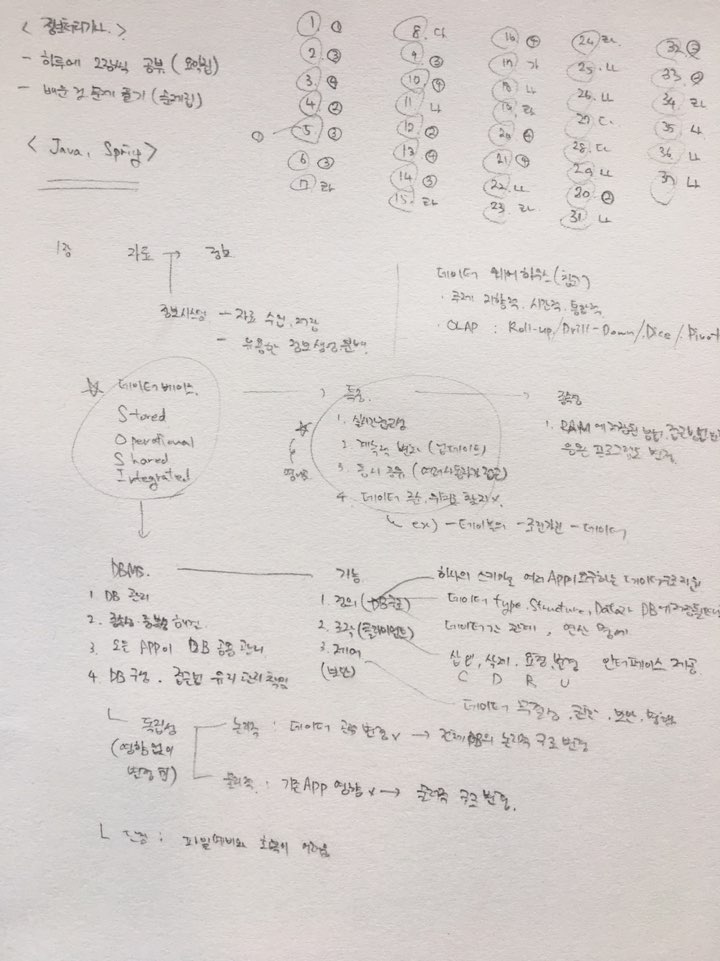 < 정보처리기사. >
- 하루에 2장씩 공부 (요약집)
- 배운 것 문제 풀기 (문제집)
< Java, Spring >
1 ①
2 ③
3 ④
4 ②
① 5 ③
6 ③
7 라
8 다
9 ③
10 ④
11 나
12 ②
13 ④
14 ③
15. 라
16 ④
17 가
18 나
19. 라
20 ④
21 ④
22. 나
23 라
24 라.
25. 나
26. 나
27 다
28. 다
29 나
20 ②
31 나
32
33.
34 라
35 나
36 나
37 나
1장 자료 → 정보
정보시스템 - 자료 수집, 저장
- 유용한 정보 생성 분배.
데이터 웨어하우스 (창고)
· 주제 지향적. 시간적. 통합적.
· OLAP : Roll-up/Drill-Down/Dice/Pivot
☆ 데이터베이스.
Stored
Operational
Shared
Integrated
특징.
☆ 1. 실시간 접근성
2. 계속적 변화 (업데이트)
3. 동시 공유 (여러사용자가 접근)
4. 데이터 주소, 위치로 참조 x.
ex) - 테이블의 - 조건기반 - 데이터
종속성
1. 저장된 방법, 접근방법 변경
응용 프로그램도 변경.
DBMS.
1. DB 관리
2. 종속성. 중복성 해결.
3. 모든 APP이 DB 공용 관리
4. DB 구성. 접근법 유지 관리 책임
기능
1. 정의 (DB구조)
2. 조작 (클라이언트)
3. 제어
(보안)
하나의 스키마로 여러 App이 요구하는 데이터구조 지원
데이터 type. Structure, Data가 DB에 저장될 때
데이터간 관계, 연산 명세
삽입, 삭제. 요청, 변경 인터페이스 제공
C D R U
데이터 무결성. 권한. 보안. 병행
└ 독립성
(영향 없이
변경 可)
논리적 : 데이터 구조 변경 x → 전체 DB의 논리적 구조 변경
물리적 : 기존 App 영향 x → 물리적 구조 변경.
└ 단점 : 파일 예비와 회복이 어려움